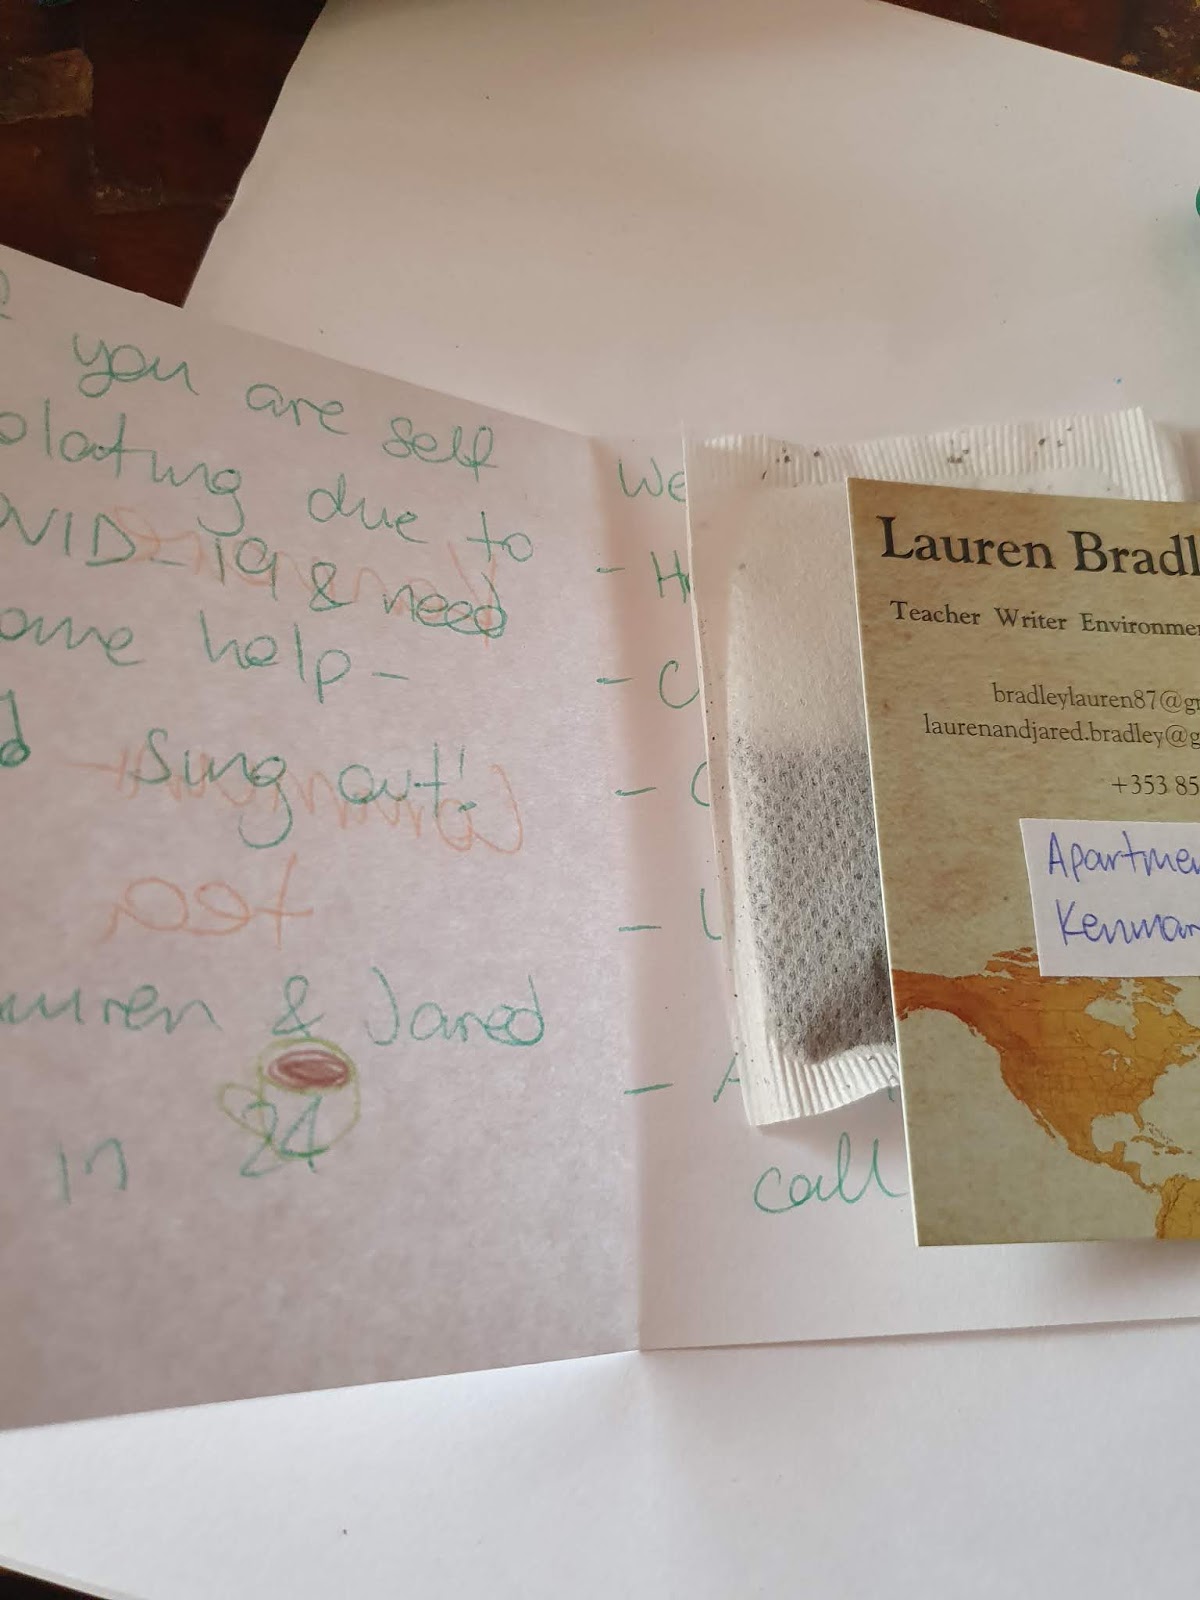 you are self
olating due to
OVID-19 & need
ome help -
Sing out!
tea
auren & Jared
in 24
We
- H
- C
- C
- L
- A
call
Lauren Bradl
Teacher Writer Environme
bradleylauren87@g
laurenandjared.bradley@g
+353 85
Apartmen
Kenmar